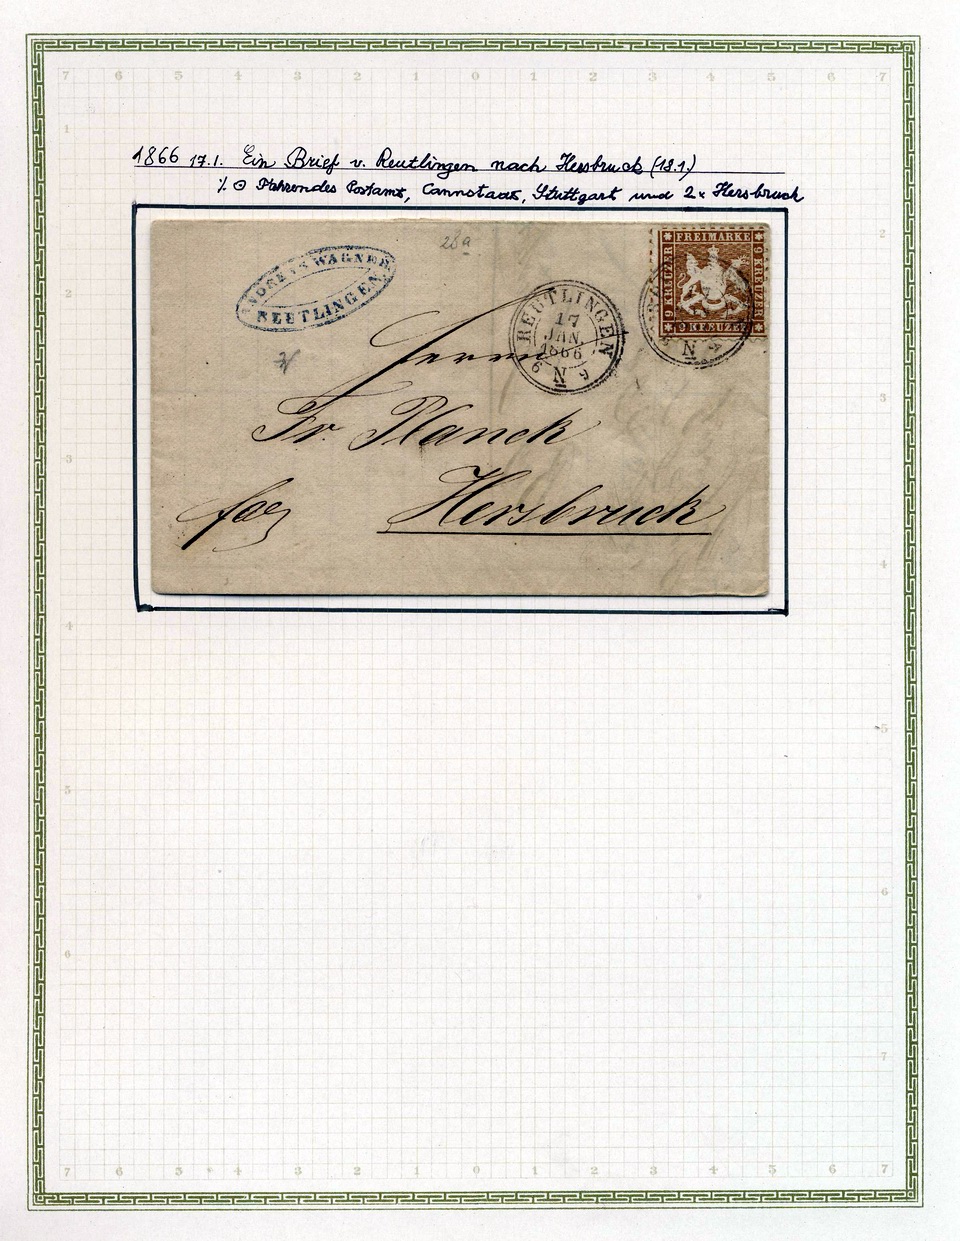 7 6 5 4 3 2 1 0 1 2 3 4 5 6 7
1866 17.1. Ein Brief v. Reutlingen nach Hersbruck (18.1.)
⁒ ⊙ Fahrendes Postamt, Cannstadt, Stuttgart und 2x Hersbruck
28a
ANDREAS WAGNER
REUTLINGEN
REUTLINGEN
17
JAN.
1866
6 N 9
FREIMARKE
9 KREUZER
9 KREUZER
9 KREUZER
N
Herrn
Fr. Planck
Hersbruck
1
2
3
4
5
6
2
3
4
5
6
7
7 6 5 4 3 2 1 0 1 2 3 4 5 6 7